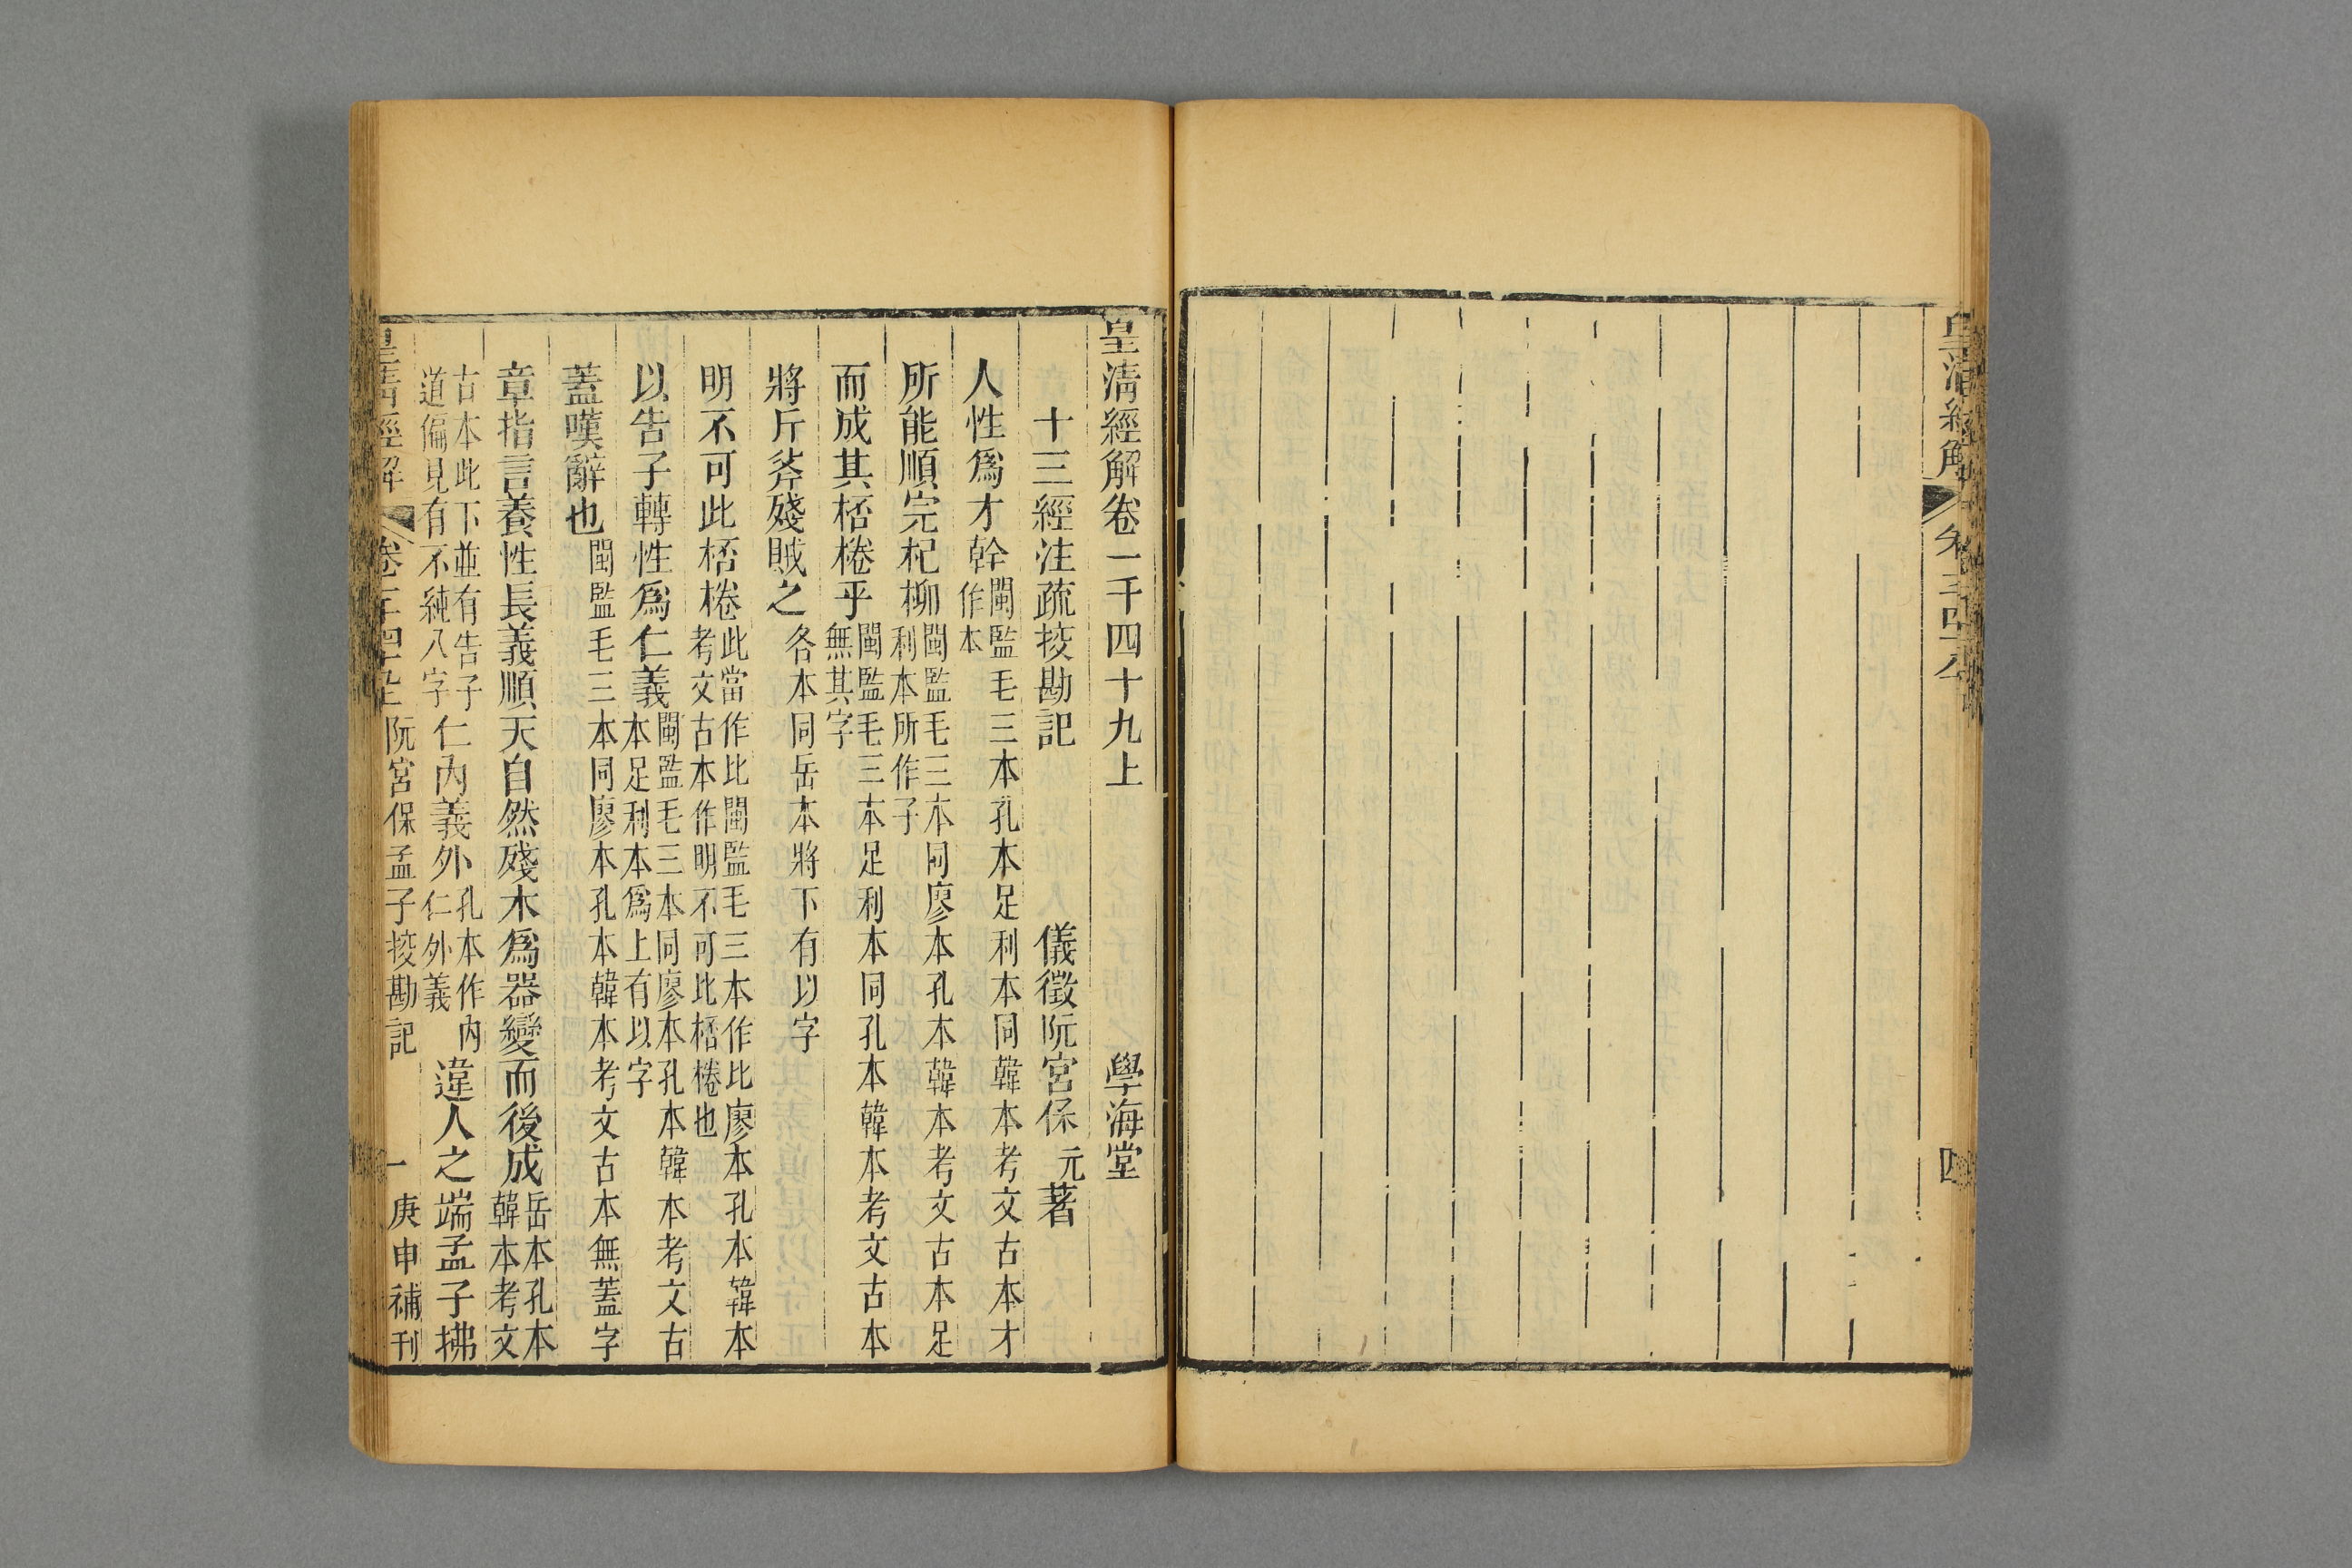 皇清經解
四
皇清經解卷一千四十九上 學海堂
十三經注疏挍勘記 儀徵阮宮保元著
人性爲才幹
閩監毛三本孔本足利本同韓本考文古本才
作本
所能順完杞柳
閩監毛三本同廖本孔本韓本考文古本足
利本所作子
而成其桮棬乎
閩監毛三本足利本同孔本韓本考文古本
無其字
將斤斧殘賊之
各本同岳本將下有以字
明不可此桮棬
此當作比閩監毛三本作比廖本孔本韓本
考文古本作明不可比桮棬也
以告子轉性爲仁義
閩監毛三本同廖本孔本韓本考文古
本足利本爲上有以字
蓋嘆辭也
閩監毛三本同廖本孔本韓本考文古本無蓋字
章指言養性長義順天自然殘木爲器變而後成
岳本孔本
韓本考文
古本此下並有告子
道偏見有不純八字
仁內義外
孔本作內
仁外義
違人之端孟子拂
皇清經解
阮宮保孟子挍勘記
一
庚申補刊